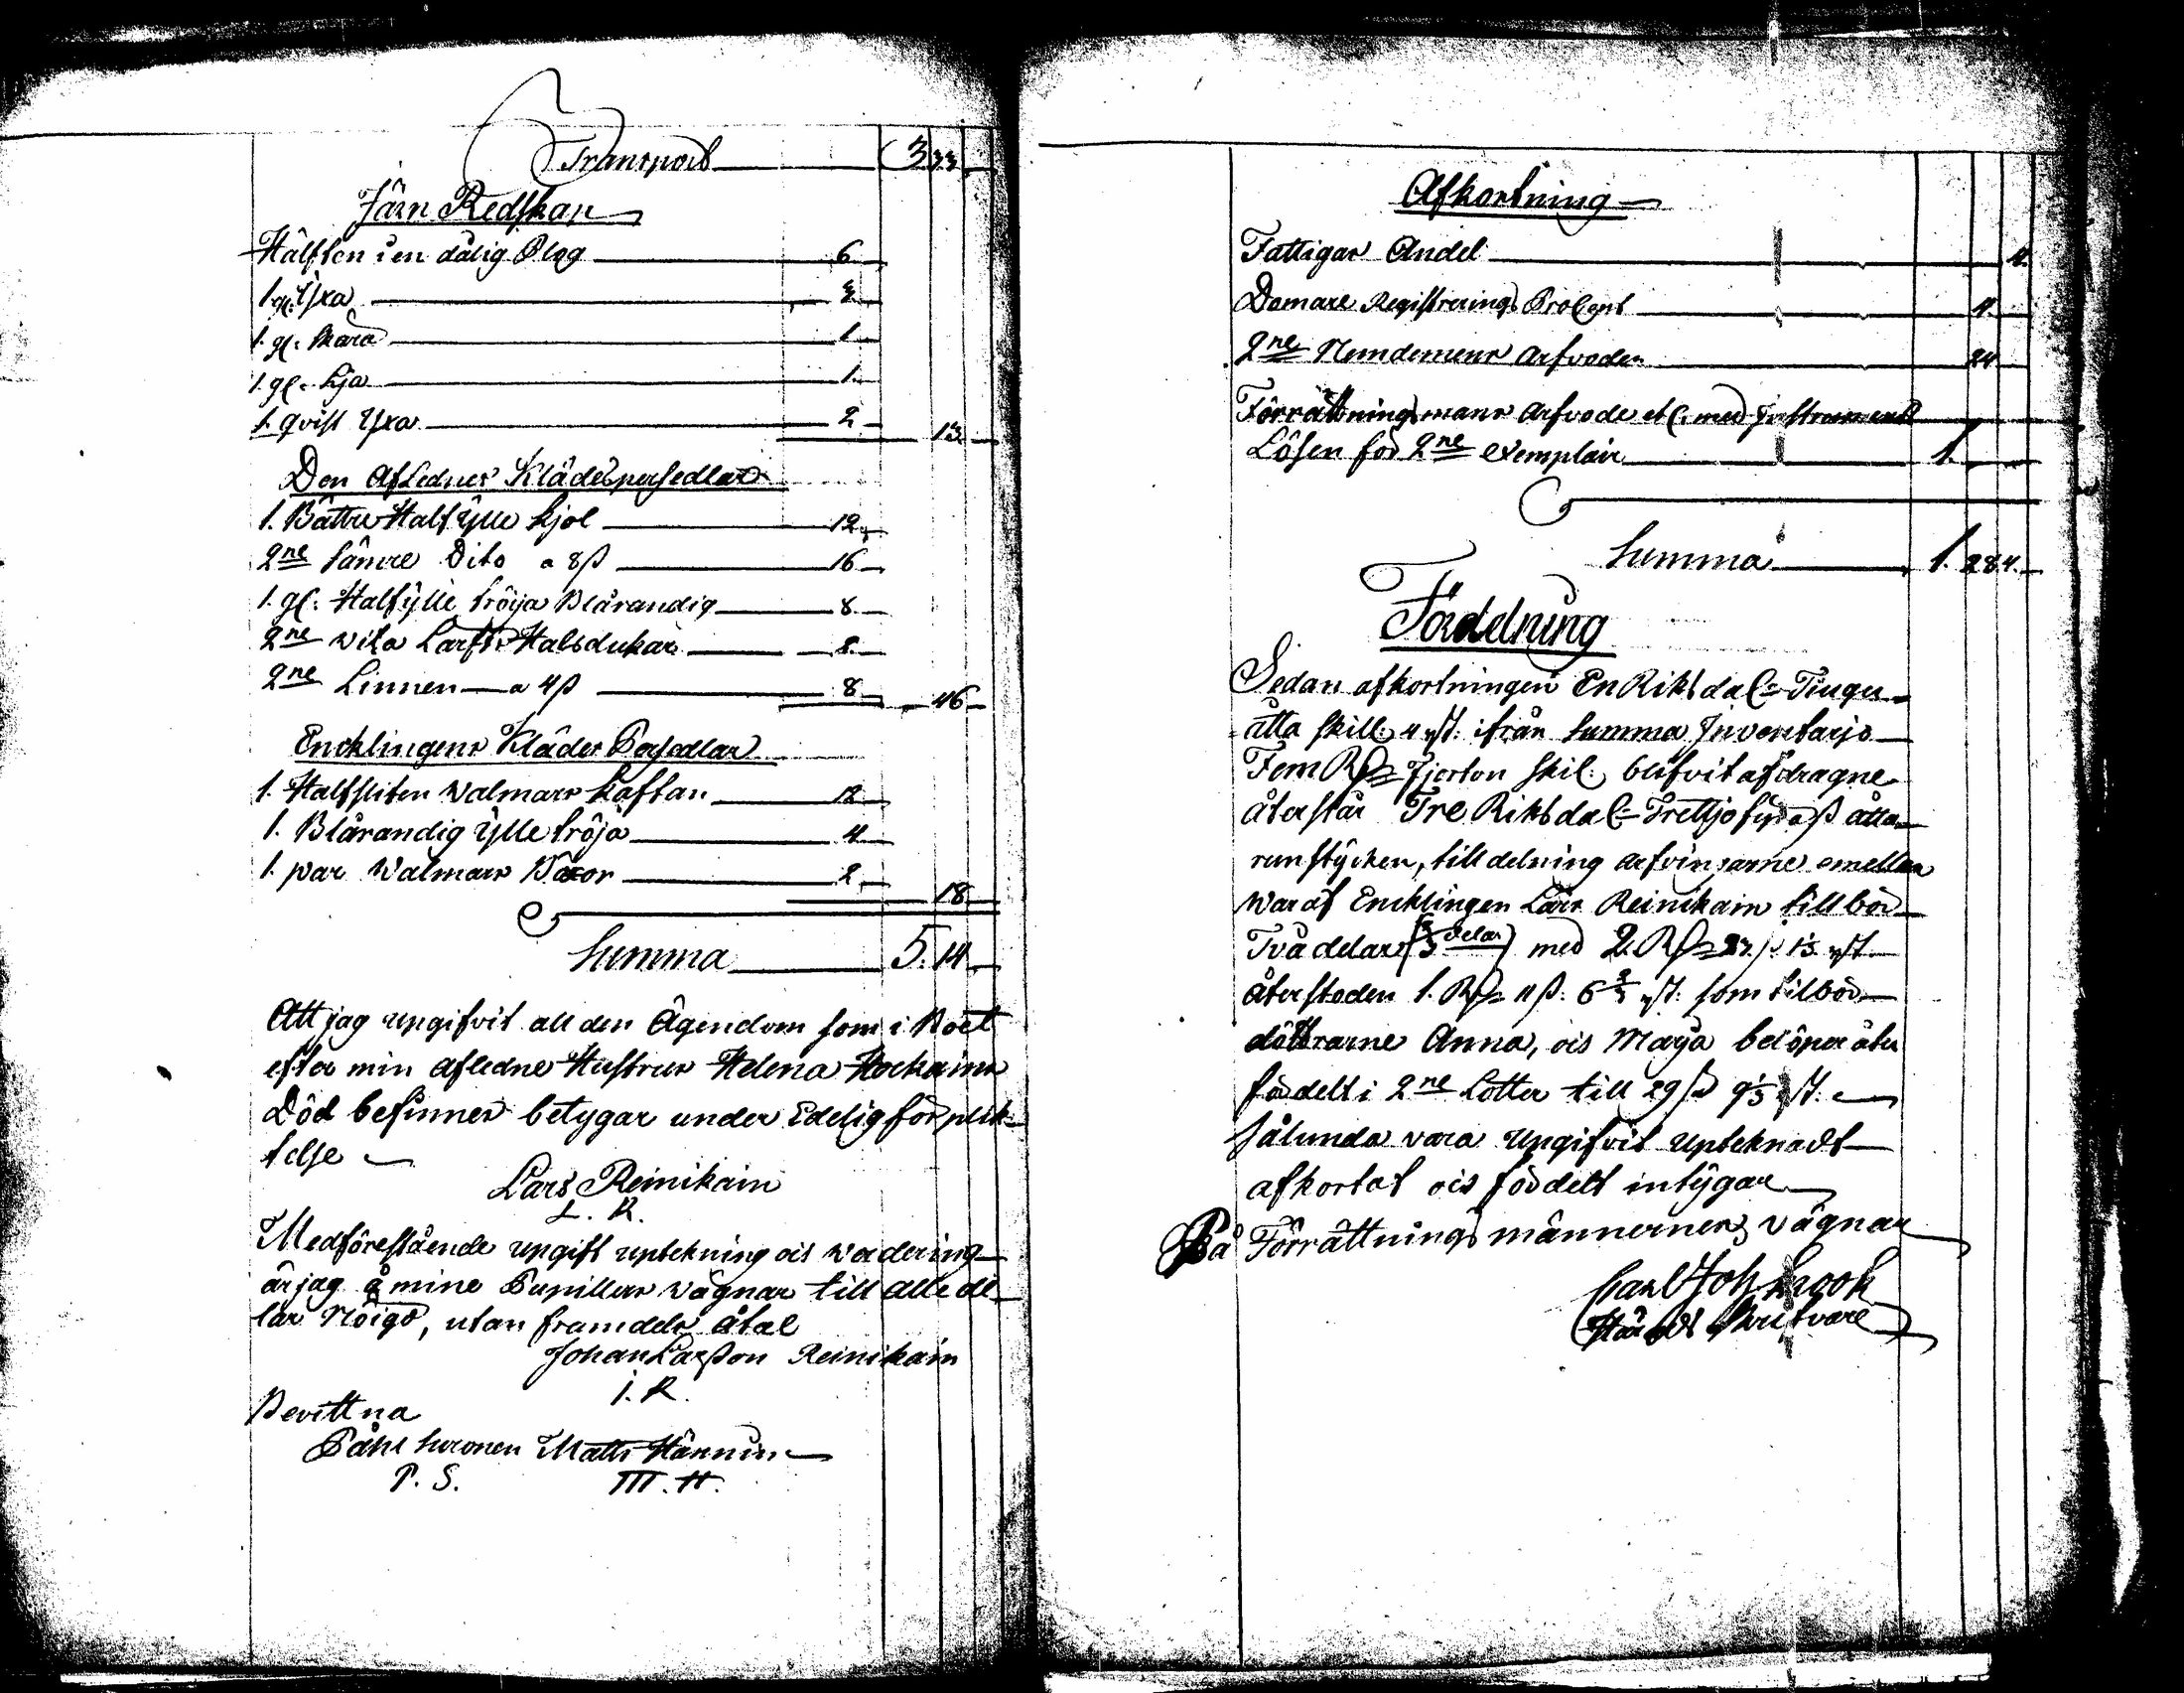 Transport 3 33
Järn Redskap
Hälften i en dålig Plog 6
1 gl. Yxa 3
1. gl. Skära 1
1. gl. Lja 1.
1. qvist Yxa 2 13
Den Aflednes Klädespersedlar
1. Bättre Halfylle kjol 12
2ne sämre Dito a 8ß 16
1. gl. Halfylle tröija Blårandig 8
2ne vita Larfts Halsdukar 2
2ne Linnen a 4ß 8 46
Encklingens Kläder Persedlar
1. Halfsliten Walmars kaftan 12
1. Blårandig Ylle tröja 4
1. par Walmars Böxor 2 18
Summa 5. 14
Att jag upgifvit all den Ägendom som i Boet
efter min afledne Hustrus Helena
Död befinnes betygar under Edelig förplik-
telse
Lars Reinikain
L. R.
Medföreslående upgift uptekning ocs wardering
är jag å mine Pupillers vägnar till alle de-
lar Nöigd, utan framdels åtal
Johan Larßon Reinikain
i. R.
Bevittna
Påhl Suronen Matts Hännin
P. S. M. H.
Afkortning
Fattigas Andel 4.
Domare Registrerings ProCent 4.
2ne Nemdemens arfvoden 24
Förrättnings mans Arfvode etc. med Instrument
Lösen för 2ne exemplair 1.
Summa 1. 28 4.
Fördelning
Sedan afkortningen En Riksdal Tiugu
åtta skill: 4 rst: ifrån Summa Inventarjo
Fem Rd Fjorton Skil. blifvit afdragne
återstår Tre Riksdal Trettjo fyra ß åtta
runstycken, till delning arfvingarne emellan
waraf Encklingen Lars Reinikain tillbör
Två delar (2/3 delar) med 2 Rd 23 ß 1 1/3 rst
återstoden 1. Rd 11 ß. 6 2/3 rst: som tilbör
döttrarne Anna, ocs Marja belöper åter
fördelt i 2ne Lotter till 29 ß 9 1/3 rst.
Sålunda vara Upgifvit upteknadt
afkortat ocs fördelt intygar
På Förrättnings männernes vägnar
Carl Joh Krook
Härads Skrifvare